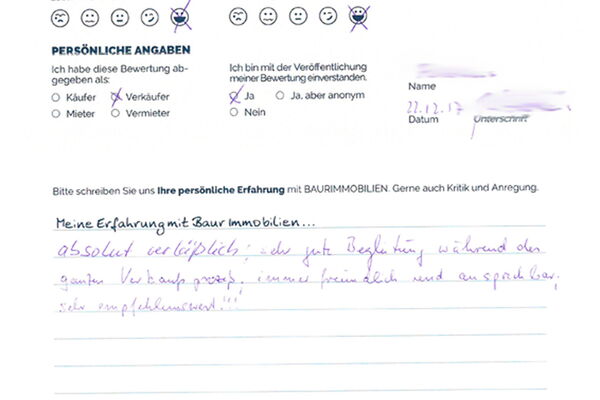 PERSÖNLICHE ANGABEN
Ich habe diese Bewertung ab-
gegeben als:
Käufer Verkäufer
Mieter Vermieter
Ich bin mit der Veröffentlichung
meiner Bewertung einverstanden.
Ja Ja, aber anonym
Nein
Name
22.12.17
Datum Unterschrift
Bitte schreiben Sie uns Ihre persönliche Erfahrung mit BAURIMMOBILIEN. Gerne auch Kritik und Anregung.
Meine Erfahrung mit Baur Immobilien...
absolut verläßlich, sehr gute Begleitung während des
ganzen Verkaufsprozeß, immer freundlich und ansprechbar,
sehr empfehlenswert!!!